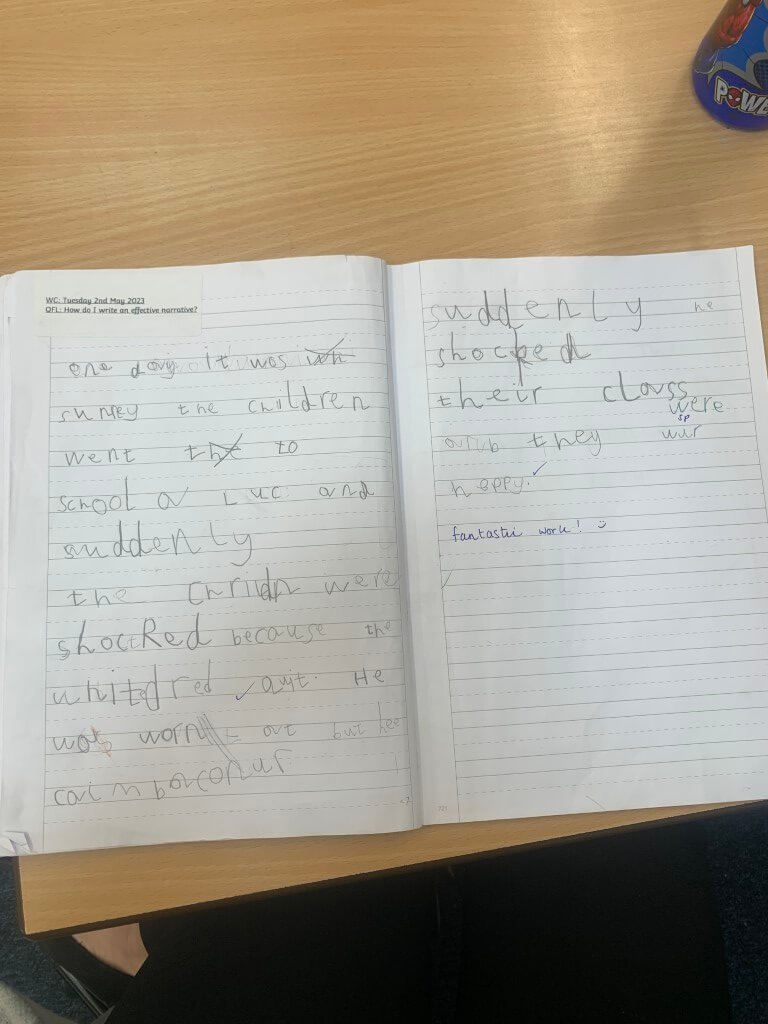 WC: Tuesday 2nd May 2023
QFL: How do I write an effective narrative?
one day it was
suney the children
went the to
school a Luc and
suddenly
the Cnrildn were
shocked because the
whited red ✓ quit. He
was worn out but hee
caim bacon ur
suddenly he
shocked
their class
were
sp
they wur
heppy. ✓
fantastic work! :)
POWE